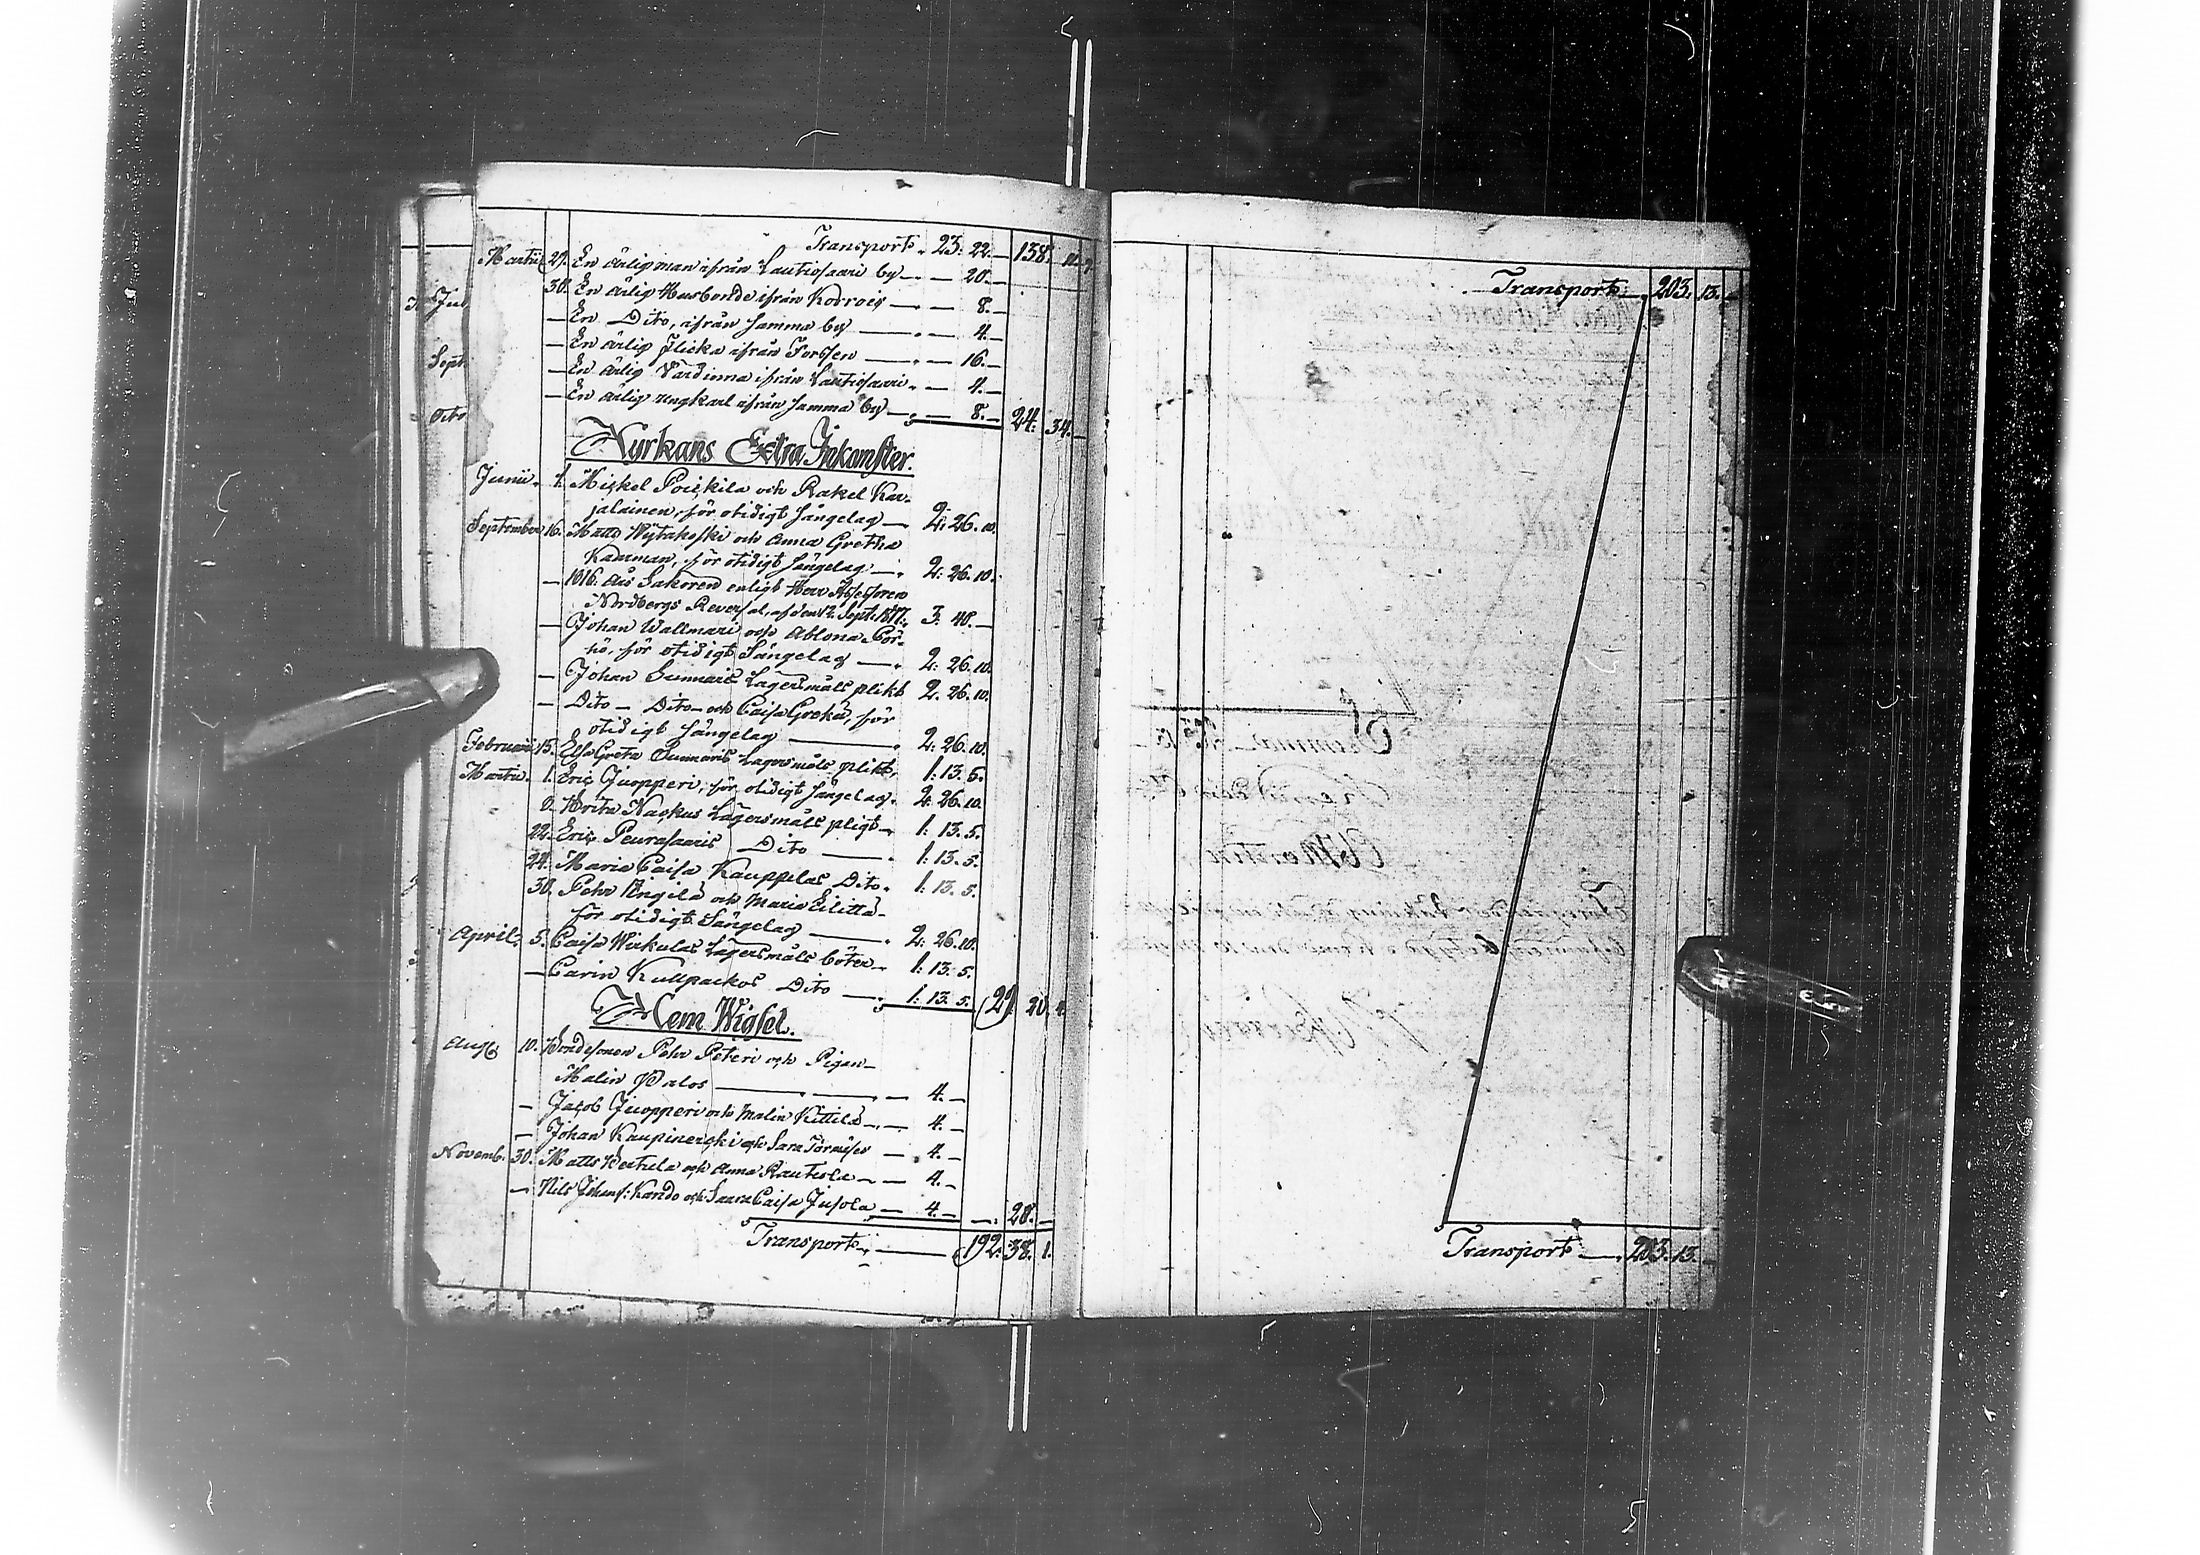 Transport. 23: 22.— 138. 10. 7.
Martii 27. En ärlig man ifrån Lautiosaari by — — 20.—
30. En ärlig Husbonde ifrån Korrois — — 8.—
— En Dito, ifrån samma by — — 4.—
— En ärlig Flicka ifrån Forssen — — 16.—
— En ärlig Värdinna ifrån Lautiosaari. — 4.—
— En ärlig ungkarl ifrån samma by — — 8.— 24. 34.—
Jul
Sept.
Octo
Kyrkans Extra Inkomster.
Junii. 1. Mickel Poickila och Rakel Kar-
jalainen, för otidigt sängelag — 2: 26. 10.
September 16. Matts Wytakoski och Anna Gretha
Kaarman, för otidigt sängelag — 2: 26. 10.
— 1816 års Sakören enligt Herr Assessoren
Nordbergs Reversal, af den 12. Sept. 1817. 3. 40.—
— Johan Wallmari och Ablona Pör-
hö, för otidigt Sängelag — 2: 26. 10.
— Johan Sunnaris Lägersmåls plikt 2. 26. 10.
— Dito — Dito — och Caisa Grekä, för
otidigt sängelag — 2: 26. 10.
Februarii 15. Elsa Greta Sunnaris Lägersmåls plikt. 1: 13. 5.
Martii. 1. Eric Juopperi, för otidigt sängelag. 2: 26. 10.
9. Brita Nackus Lägersmåls pligt — 1: 13. 5.
22. Eric Peurasaaris Dito — 1: 13. 5.
24. Maria Caisa Kauppilas Dito. 1: 13. 5.
30. Pehr Ängilä och Maria Eilittä
för otidigt Sängelag — 2: 26. 10.
April. 5. Caisa Wirkulas Lägersmåls böter — 1: 13. 5.
— Carin Kullpackos Dito — 1: 13. 5. 29. 20. 4.
Hem Wigsel.
Aug. 10. Bondesonen Pehr Peteri och Pigan
Malin Palos — 4.—
— Jacob Juopperi och Malin Kittilä — 4.—
— Johan Kaupinerski och Sara Törmises — 4.—
Novemb. 30. Matts Kertula och Anna Rautiola — 4.—
— Nils Johans: Kando och Saara Caisa Jusola — 4.— —. 20.—
Transport. — 192: 38. 1.
Transport. — 203. 13.—
Transport — 203. 13.—